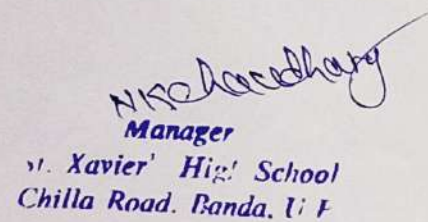 NKChaudhary
Manager
St. Xavier' High School
Chilla Road. Banda. U P